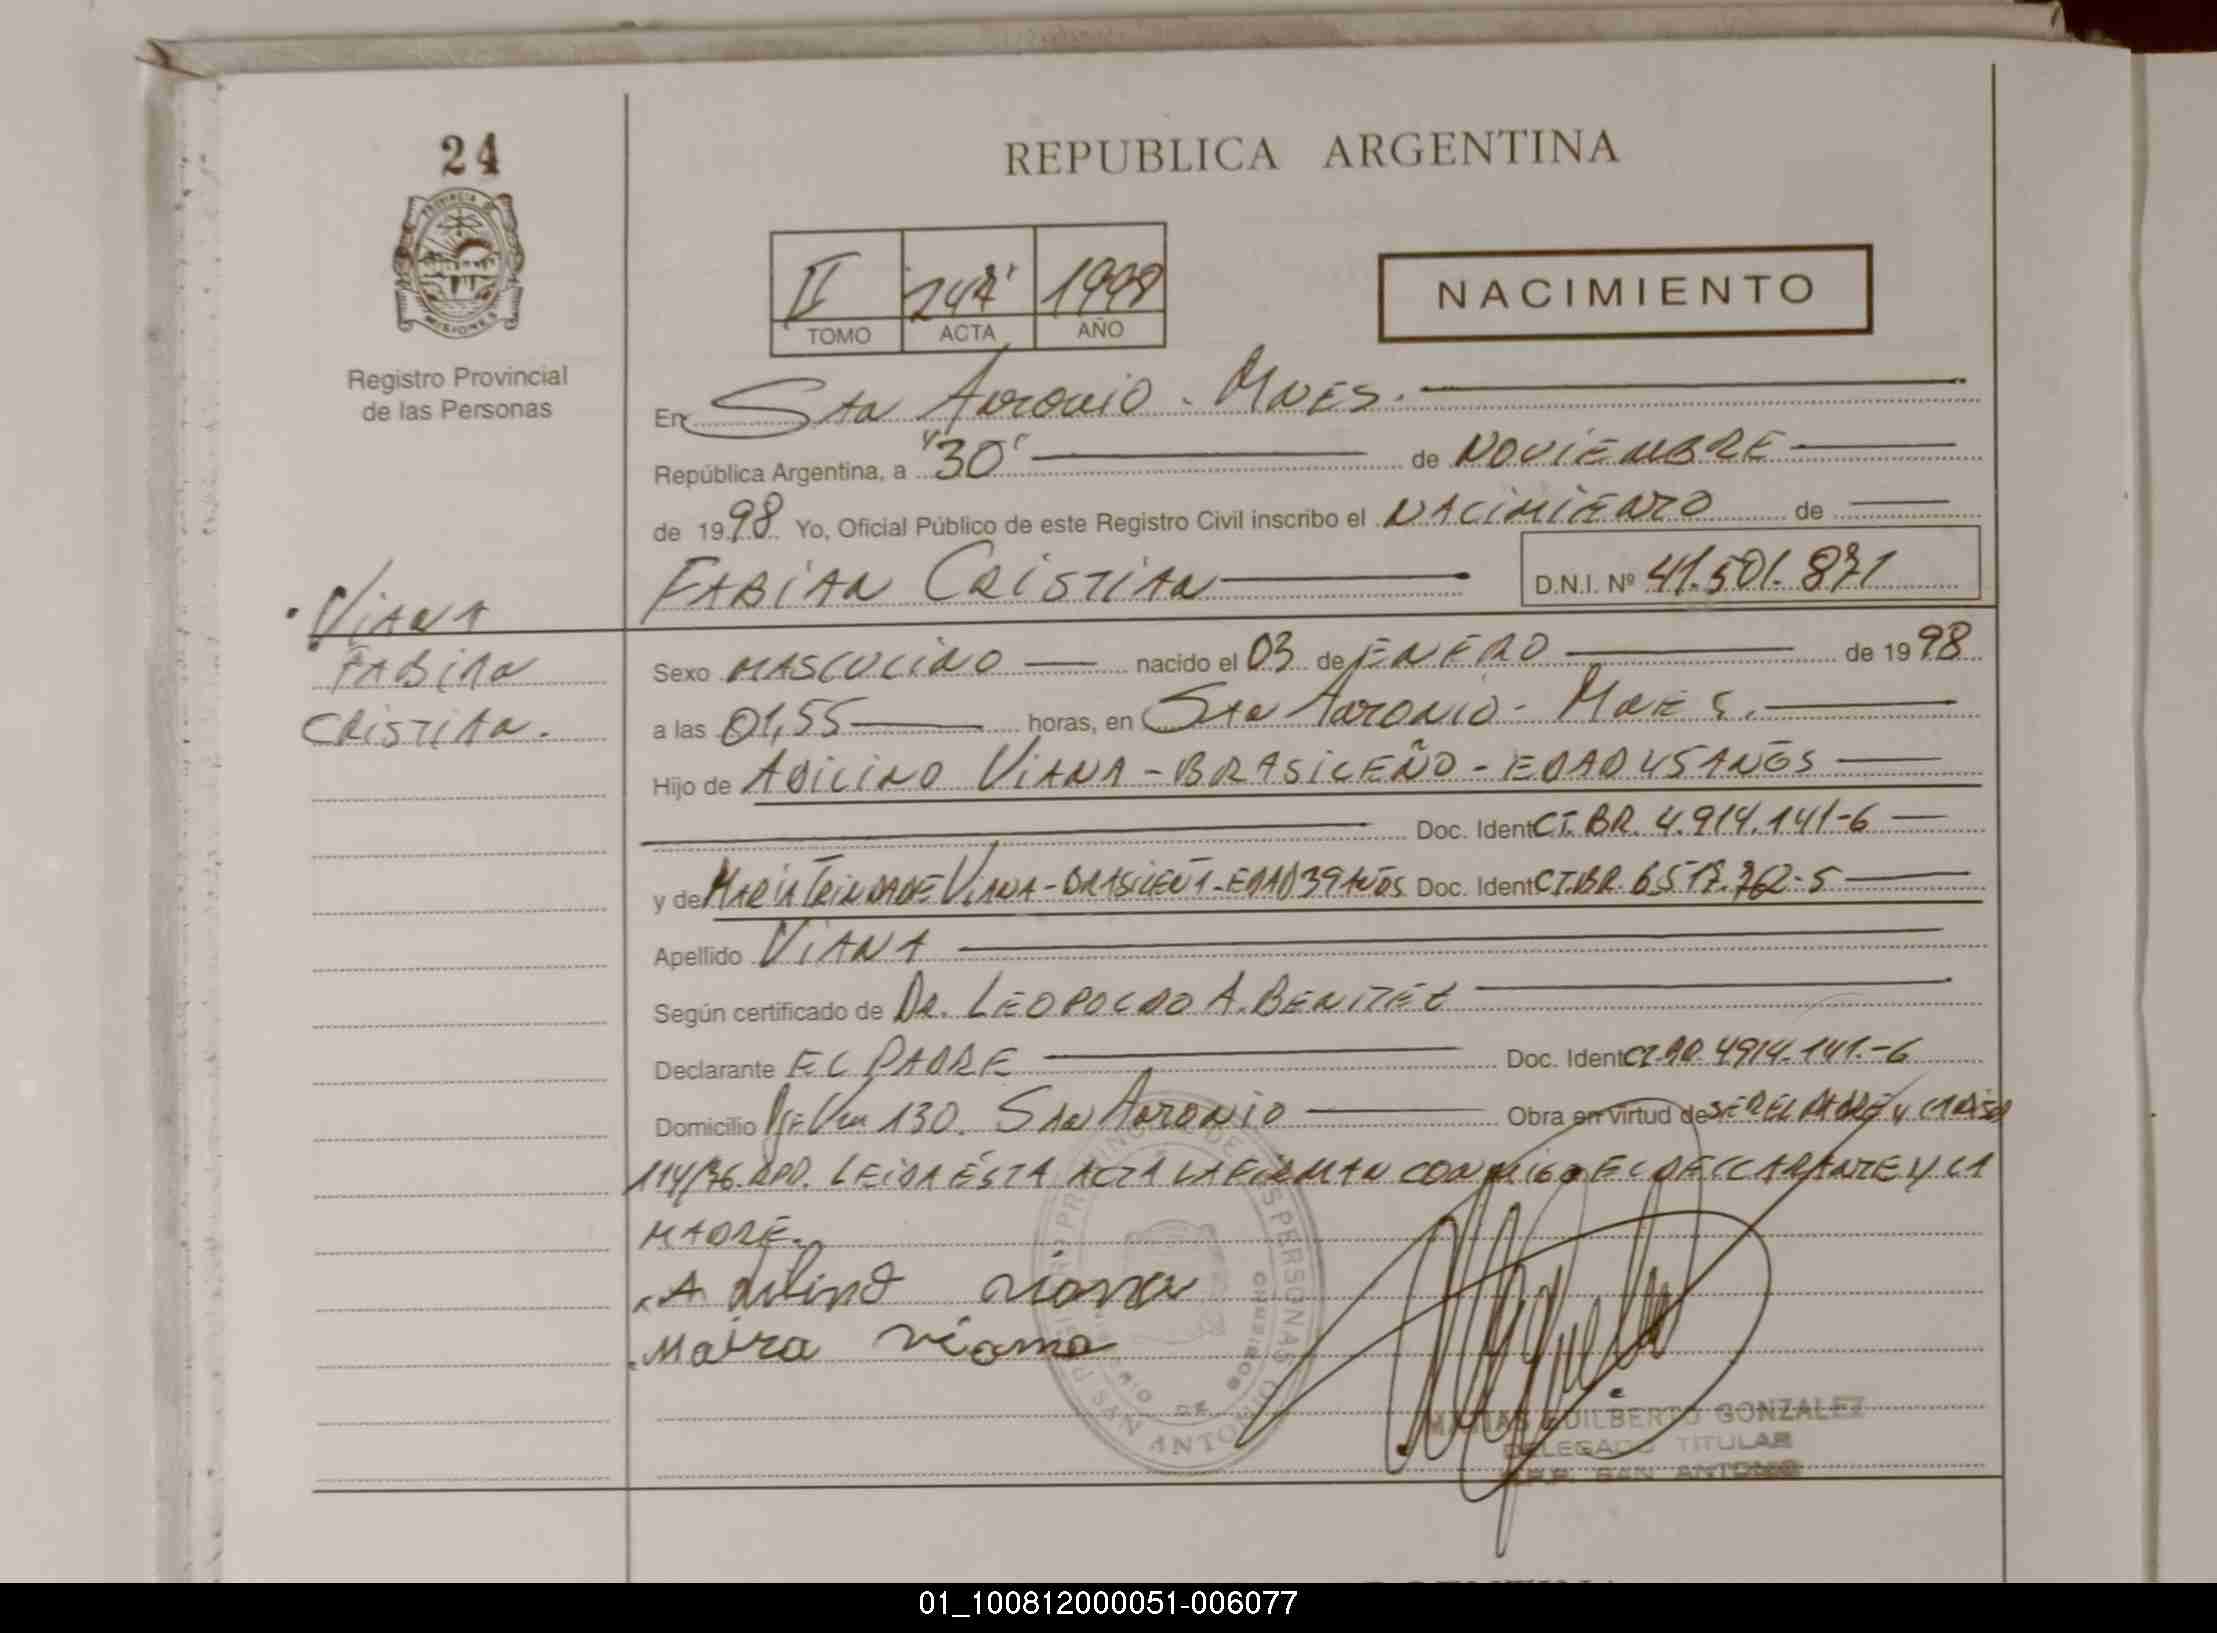 24
REPUBLICA ARGENTINA
PROVINCIA DE
MISIONES
II 1998
TOMO ACTA AÑO
NACIMIENTO
Registro Provincial
de las Personas
En San Antonio - Mnes.
República Argentina, a "30" de NOVIEMBRE
de 1998 Yo, Oficial Público de este Registro Civil inscribo el NACIMIENTO de
FABIAN CRISTIAN D.N.I. Nº 41.501.871
VIANA
FABIAN
CRISTIAN.
Sexo MASCULINO nacido el 03 de ENERO de 1998
a las 01,55 horas, en San Antonio - Mnes.
Hijo de ADILINO VIANA - BRASILEÑO - EDAD 45 AÑOS
Doc. Ident CI. BR. 4.914.141-6
y de MARIA TRINDADE VIANA - BRASILEÑA - EDAD 39 AÑOS Doc. Ident CI. BR.
Apellido VIANA
Según certificado de DR. LEOPOLDO A. BENITEZ
Declarante EL PADRE Doc. Ident CI. BR. 4914.141.-6
Domicilio 130. San Antonio Obra en virtud de SER EL PADRE Y
114/76. LEIDA ÉSTA ACTA LA FIRMAN CONMIGO EL DECLARANTE Y LA
MADRE.
Adilino viana
Maira viana
MATIAS GUILBERTO GONZALEZ
DELEGADO TITULAR
R.P.P. SAN ANTONIO
01_100812000051-006077